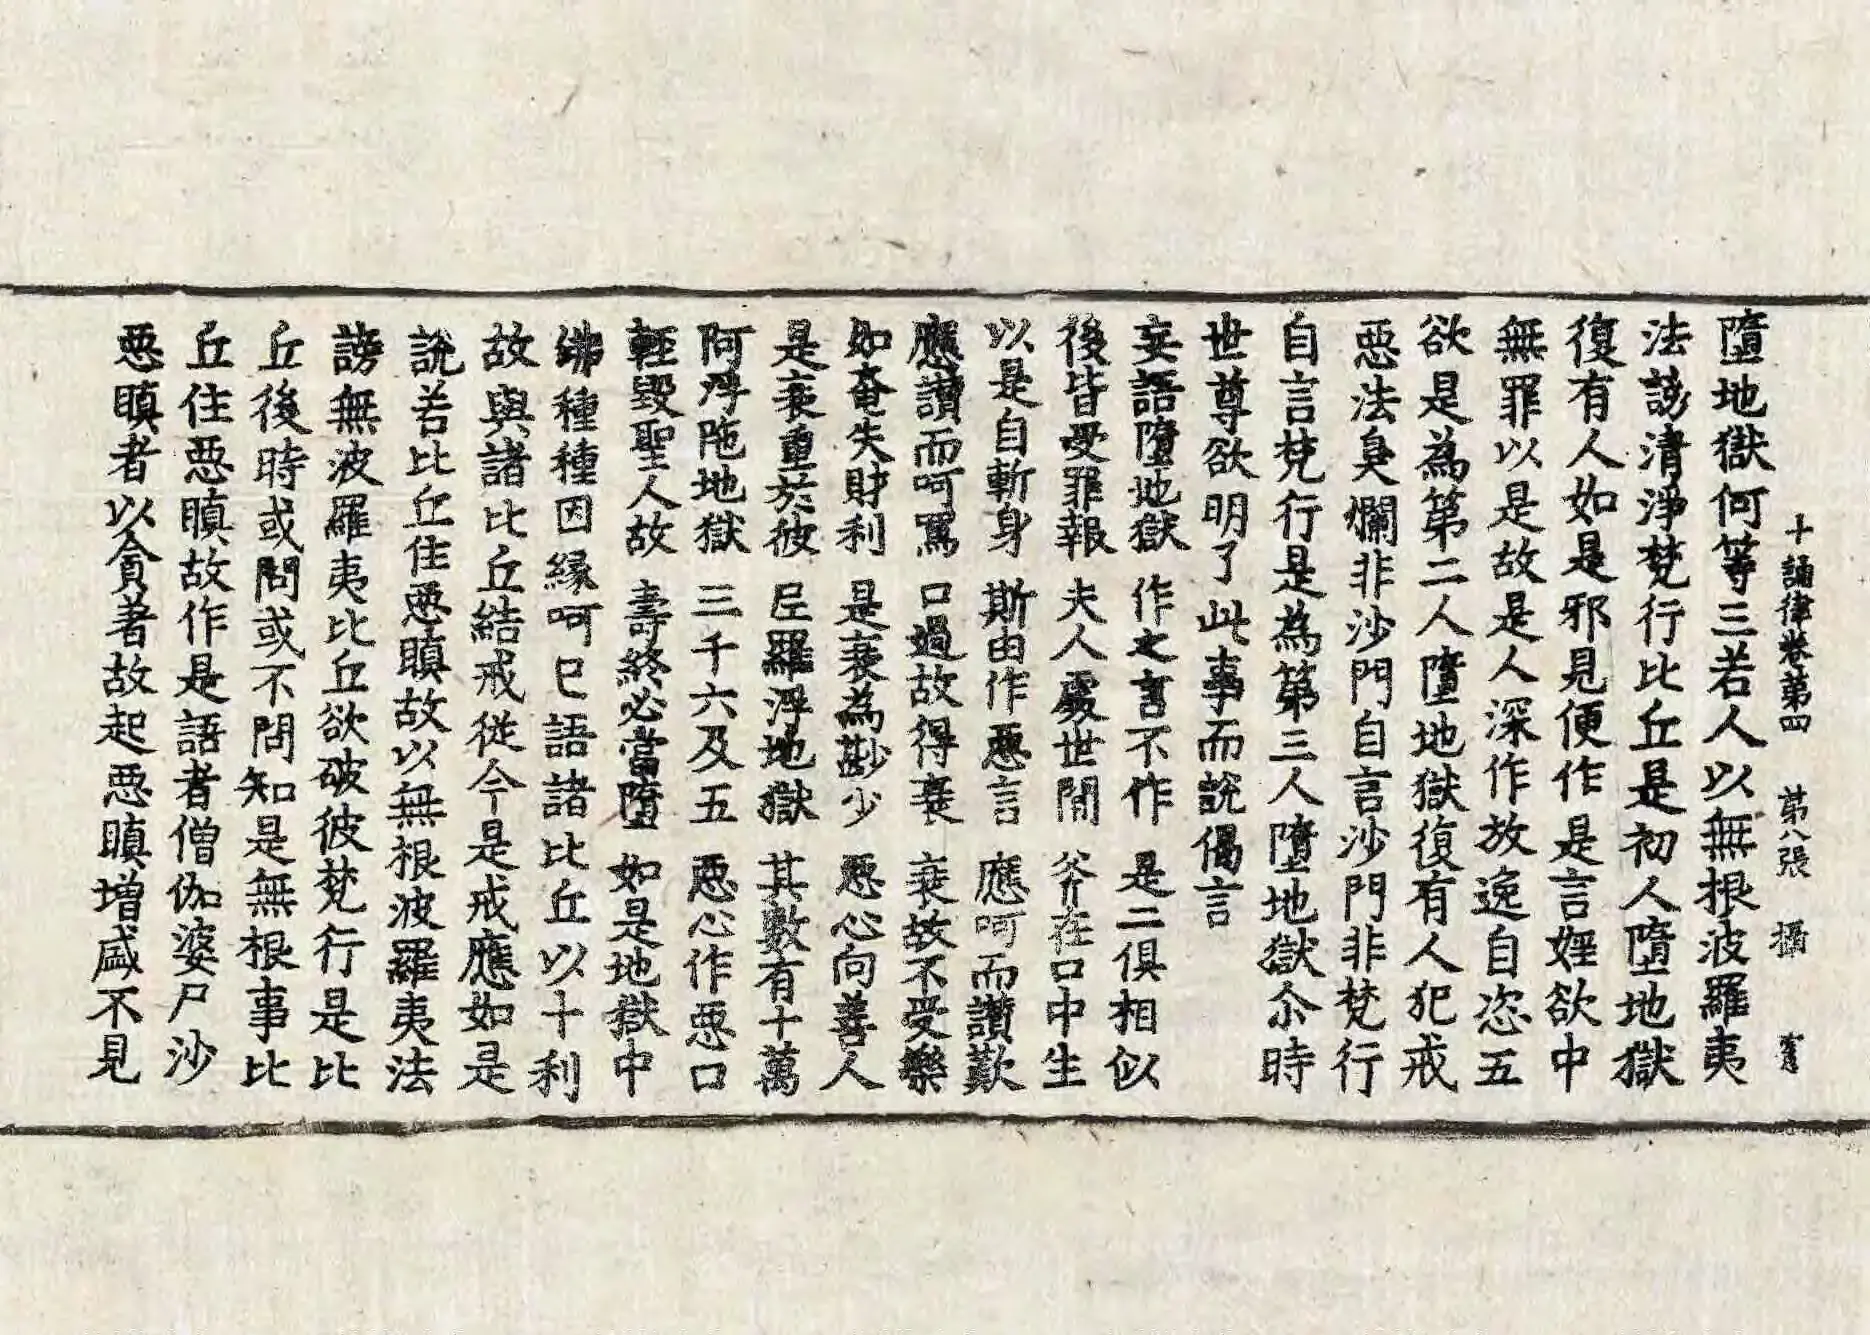 十誦律卷第四　第八張　攝
墮地獄何等三若人以無根波羅夷
法謗清淨梵行比丘是初人墮地獄
復有人如是邪見便作是言婬欲中
無罪以是故是人深作放逸自恣五
欲是為第二人墮地獄復有人犯戒
惡法臭爛非沙門自言沙門非梵行
自言梵行是為第三人墮地獄尒時
世尊欲明了此事而說偈言
妄語墮地獄　作之言不作　是二俱相似
後皆受罪報　夫人處世間　斧在口中生
以是自斬身　斯由作惡言　應呵而讃歎
應讃而呵罵　口過故得衰　衰故不受樂
如奄失財利　是衰為尠少　惡心向善人
是衰重於彼　尼羅浮地獄　其數有十萬
阿浮陁地獄　三千六及五　惡心作惡口
輕毀聖人故　壽終必當墮　如是地獄中
佛種種因緣呵已語諸比丘以十利
故與諸比丘結戒從今是戒應如是
說若比丘住惡瞋故以無根波羅夷法
謗無波羅夷比丘欲破彼梵行是比
丘後時或問或不問知是無根事比
丘住惡瞋故作是語者僧伽婆尸沙
惡瞋者以貪著故起惡瞋增盛不見